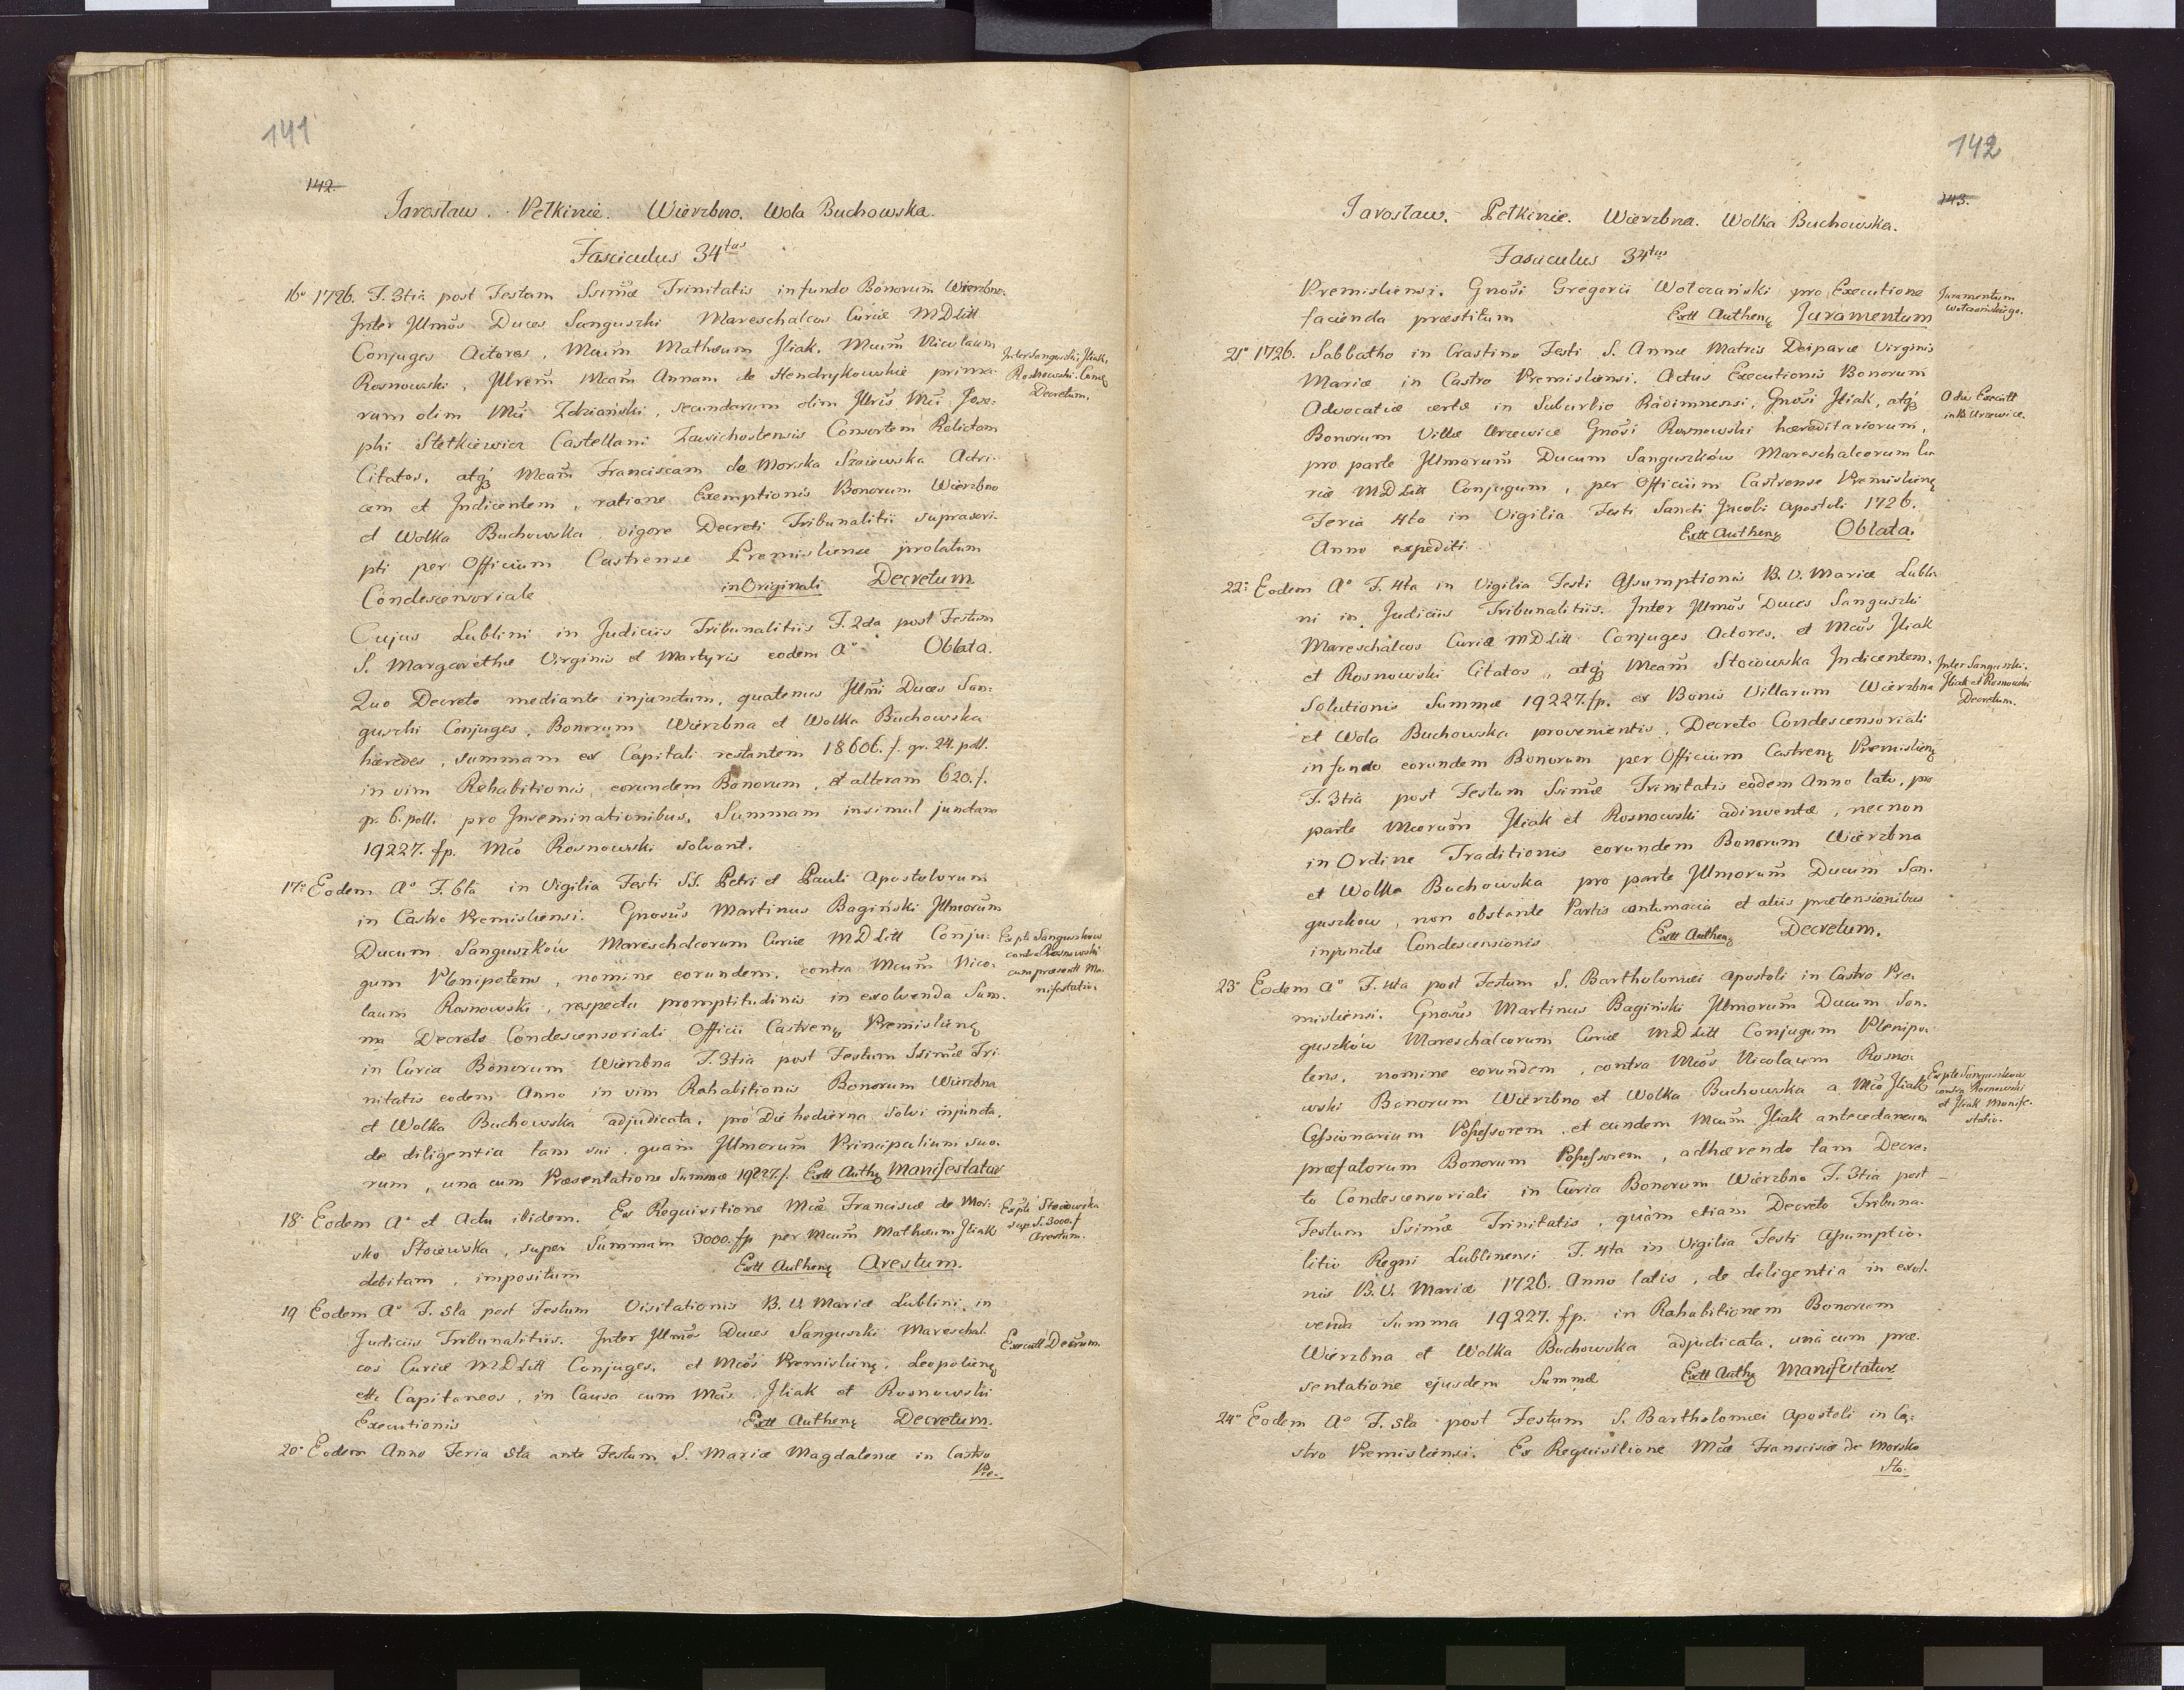 141
142.
Jarosław. Pełkinie. Wierzbno. Wola Buchowska.
Fasciculus 34tus
16º 1726. F. 3tia post Festum Ssimæ Trinitatis in fundo Bonorum Wierzbno.
Inter Illmos Duces Sanguszki Mareschalcos Curiæ MDLitt
Conjuges Actores, Mcum Mathæum Iliak, Mcum Nicolaum
Rosnowski, Illrem Mcam Annam de Hendrykowskie prima-
rum olim Mci Zdziański, secundarum olim Illris Mci Jose-
phi Stetkiewicz Castellani Zawichostensis Consortem Relictam
Citatos, atq3 Mcam Franciscam de Morska Stoiewska Actri-
cem et Indicentem, ratione Exemptionis Bonorum Wierzbno
et Wolka Buchowska vigore Decreti Tribunalitii suprascri-
pti per Officium Castrense Premisliense prolatum
Condescensoriale in Originali Decretum.
Inter Sanguszki, Iliak,
Rosnowski Condę
Decretum.
Cujus Lublini in Judiciis Tribunalitiis F. 2da post Festum
S. Margarethæ Virginis et Martyris eodem Aº Oblata.
Quo Decreto mediante injunctum, quatenus Illmi Duces San-
guszki Conjuges, Bonorum Wierzbna et Wolka Buchowska
hæredes, summam ex Capitali restantem 18606. f. gr. 24. poll.
in vim Rehabitionis eorundem Bonorum, et alteram 620. f.
gr. 6. poll. pro Inseminationibus, Summam insimul junctam
19227. fp. Mco Rosnowski solvant.
17º Eodem Aº F. 6ta in Vigilia Festi SS. Petri et Pauli Apostolorum
in Castro Premisliensi. Gnosus Martinus Bagiński Illmorum
Ducum Sanguszków Mareschalcorum Curiæ MDLitt Conju-
gum Plenipotens, nomine eorundem, contra Mcum Nico-
laum Rosnowski, respectu promptitudinis in exolvenda Sum-
ma Decreto Condescensoriali Officii Castrenę Premislienę
in Curia Bonorum Wierzbna F. 3tia post Festum Ssimæ Tri
nitatis eodem Anno in vim Rehabitionis Bonorum Wierzbna
et Wolka Buchowska adjudicata, pro Die hodierna solvi injuncta,
de diligentia tam sui, quam Illmorum Principalium suo-
rum, una cum Præsentatione Summæ 19227. f. Extt Authę Manifestatur
Ex pte Sanguszkow
contra Rosnowski
cum præsentt Ma-
nifestatio.
18º Eodem Aº et Actu ibidem. Ex Requisitione Mcæ Franciscæ de Mor-
sko Stoiewska, super Summam 3000. fp per Mcum Mathæum Iliak
debitam, impositum Extt Authenę Arestum.
Ex pte Stoiowska
sup. S. 3000. f
Arestum.
19 Eodem Aº F. 5ta post Festum Visitationis B. V. Mariæ Lublini, in
Judiciis Tribunalitiis. Inter Illmos Duces Sanguszki Mareschal-
cos Curiæ MDLitt Conjuges, et Mcos Premislienę, Leopolienę
ettc Capitaneos, in Causa cum Mcis Iliak et Rosnowski
Executionis Extt Authenę Decretum.
Executt Decretum.
20º Eodem Anno Feria 5ta ante Festum S. Mariæ Magdalenæ in Castro
Pre-
142
143.
Jarosław. Pełkinie. Wierzbna. Wolka Buchowska.
Fasciculus 34tus
Premisliensi. Gnosi Gregorii Wołczański pro Executione
facienda præstitum Extt Authenę Juramentum
Juramentum
Wołczańskiego.
21º 1726. Sabbatho in Crastino Festi S. Annæ Matris Deiparæ Virginis
Mariæ in Castro Premisliensi. Actus Executionis Bonorum
Advocatiæ certæ in Suburbio Radimnensi, Gnosi Iliak, atq3
Bonorum Villæ Urzewice Gnosi Rosnowski hæreditariorum,
pro parte Illmorum Ducum Sanguszków Mareschalcorum Cu
riæ MDLitt Conjugum, per Officium Castrense Premislienę
Feria 4ta in Vigilia Festi Sancti Jacobi Apostoli 1726.
Anno expediti. Extt Authenę Oblata.
Actus Executt
in B. Urzewice.
22º Eodem Aº F. 4ta in Vigilia Festi Assumptionis B. V. Mariæ Lubli-
ni in Judiciis Tribunalitiis. Inter Illmos Duces Sanguszki
Mareschalcos Curiæ MDLitt Conjuges Actores, et Mcos Iliak
et Rosnowski Citatos, atq3 Mcam Stoiowska Indicentem,
Solutionis Summæ 19227. fp. ex Bonis Villarum Wierzbna
et Wola Buchowska provenientis, Decreto Condescensoriali
in fundo eorundem Bonorum per Officium Castrenę Premislienę
F. 3tia post Festum Ssimæ Trinitatis eodem Anno lato, pro
parte Mcorum Iliak et Rosnowski adinventæ, necnon
in Ordine Traditionis eorundem Bonorum Wierzbna
et Wolka Buchowska pro parte Illmorum Ducum San-
guszkow, non obstante Partis contumacia et aliis prætensionibus
injunctæ Condescensionis Extt Authenę Decretum.
Inter Sanguszki.
Iliak et Rosnowski
Decretum.
23º Eodem Aº F. 4ta post Festum S. Bartholomæi Apostoli in Castro Pre-
misliensi. Gnosus Martinus Bagiński Illmorum Ducum San-
guszków Mareschalcorum Curiæ MDLitt Conjugum Plenipo-
tens, nomine eorundem, contra Mcos Nicolaum Rosno-
wski Bonorum Wierzbno et Wolka Buchowska a Mco Iliak
Cessionarium Possessorem, et eundem Mcum Iliak antecedaneum
præfatorum Bonorum Possessorem, adhærendo tam Decre-
to Condescensoriali in Curia Bonorum Wierzbna F. 3tia post
Festum Ssimæ Trinitatis, quàm etiam Decreto Tribuna-
litio Regni Lublinensi F. 4ta in Vigilia Festi Assumptio-
nis B. V. Mariæ 1726. Anno latis, de diligentia in exol-
venda Summa 19227. fp. in Rahabitionem Bonorum
Wierzbna et Wolka Buchowska adjudicata, unà cum præ-
sentatione ejusdem Summæ Extt Authę Manifestatur
Ex pte Sanguszkow
contra Rosnowski
et Iliak Manife-
statio.
24º Eodem Aº F. 5ta post Festum S. Bartholomæi Apostoli in Ca-
stro Premisliensi. Ex Requisitione Mcæ Franciscæ de Morsko
Sto-